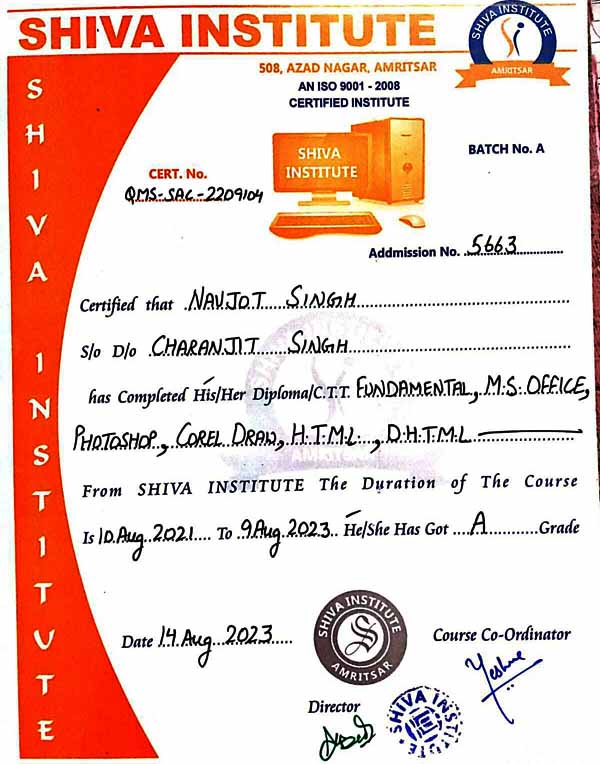 SHIVA INSTITUTE
SHIVA INSTITUTE
AMRITSAR
508, AZAD NAGAR, AMRITSAR
AN ISO 9001 - 2008
CERTIFIED INSTITUTE
SHIVA INSTITUTE
SHIVA
INSTITUTE
BATCH No. A
CERT. No.
QMS-SAC-2209104
Addmission No. 5663
Certified that NAVJOT SINGH
S/o D/o CHARANJIT SINGH
has Completed His/Her Diploma/C.T.T. FUNDAMENTAL, M.S. OFFICE,
PHOTOSHOP, COREL DRAW, H.T.M.L., D.H.T.M.L
From SHIVA INSTITUTE The Duration of The Course
Is 10 Aug. 2021 To 9 Aug 2023 He/She Has Got A Grade
Date 14 Aug 2023
SHIVA INSTITUTE
S
AMRITSAR
Course Co-Ordinator
Yeshme
Director
SHIVA INSTITUTE